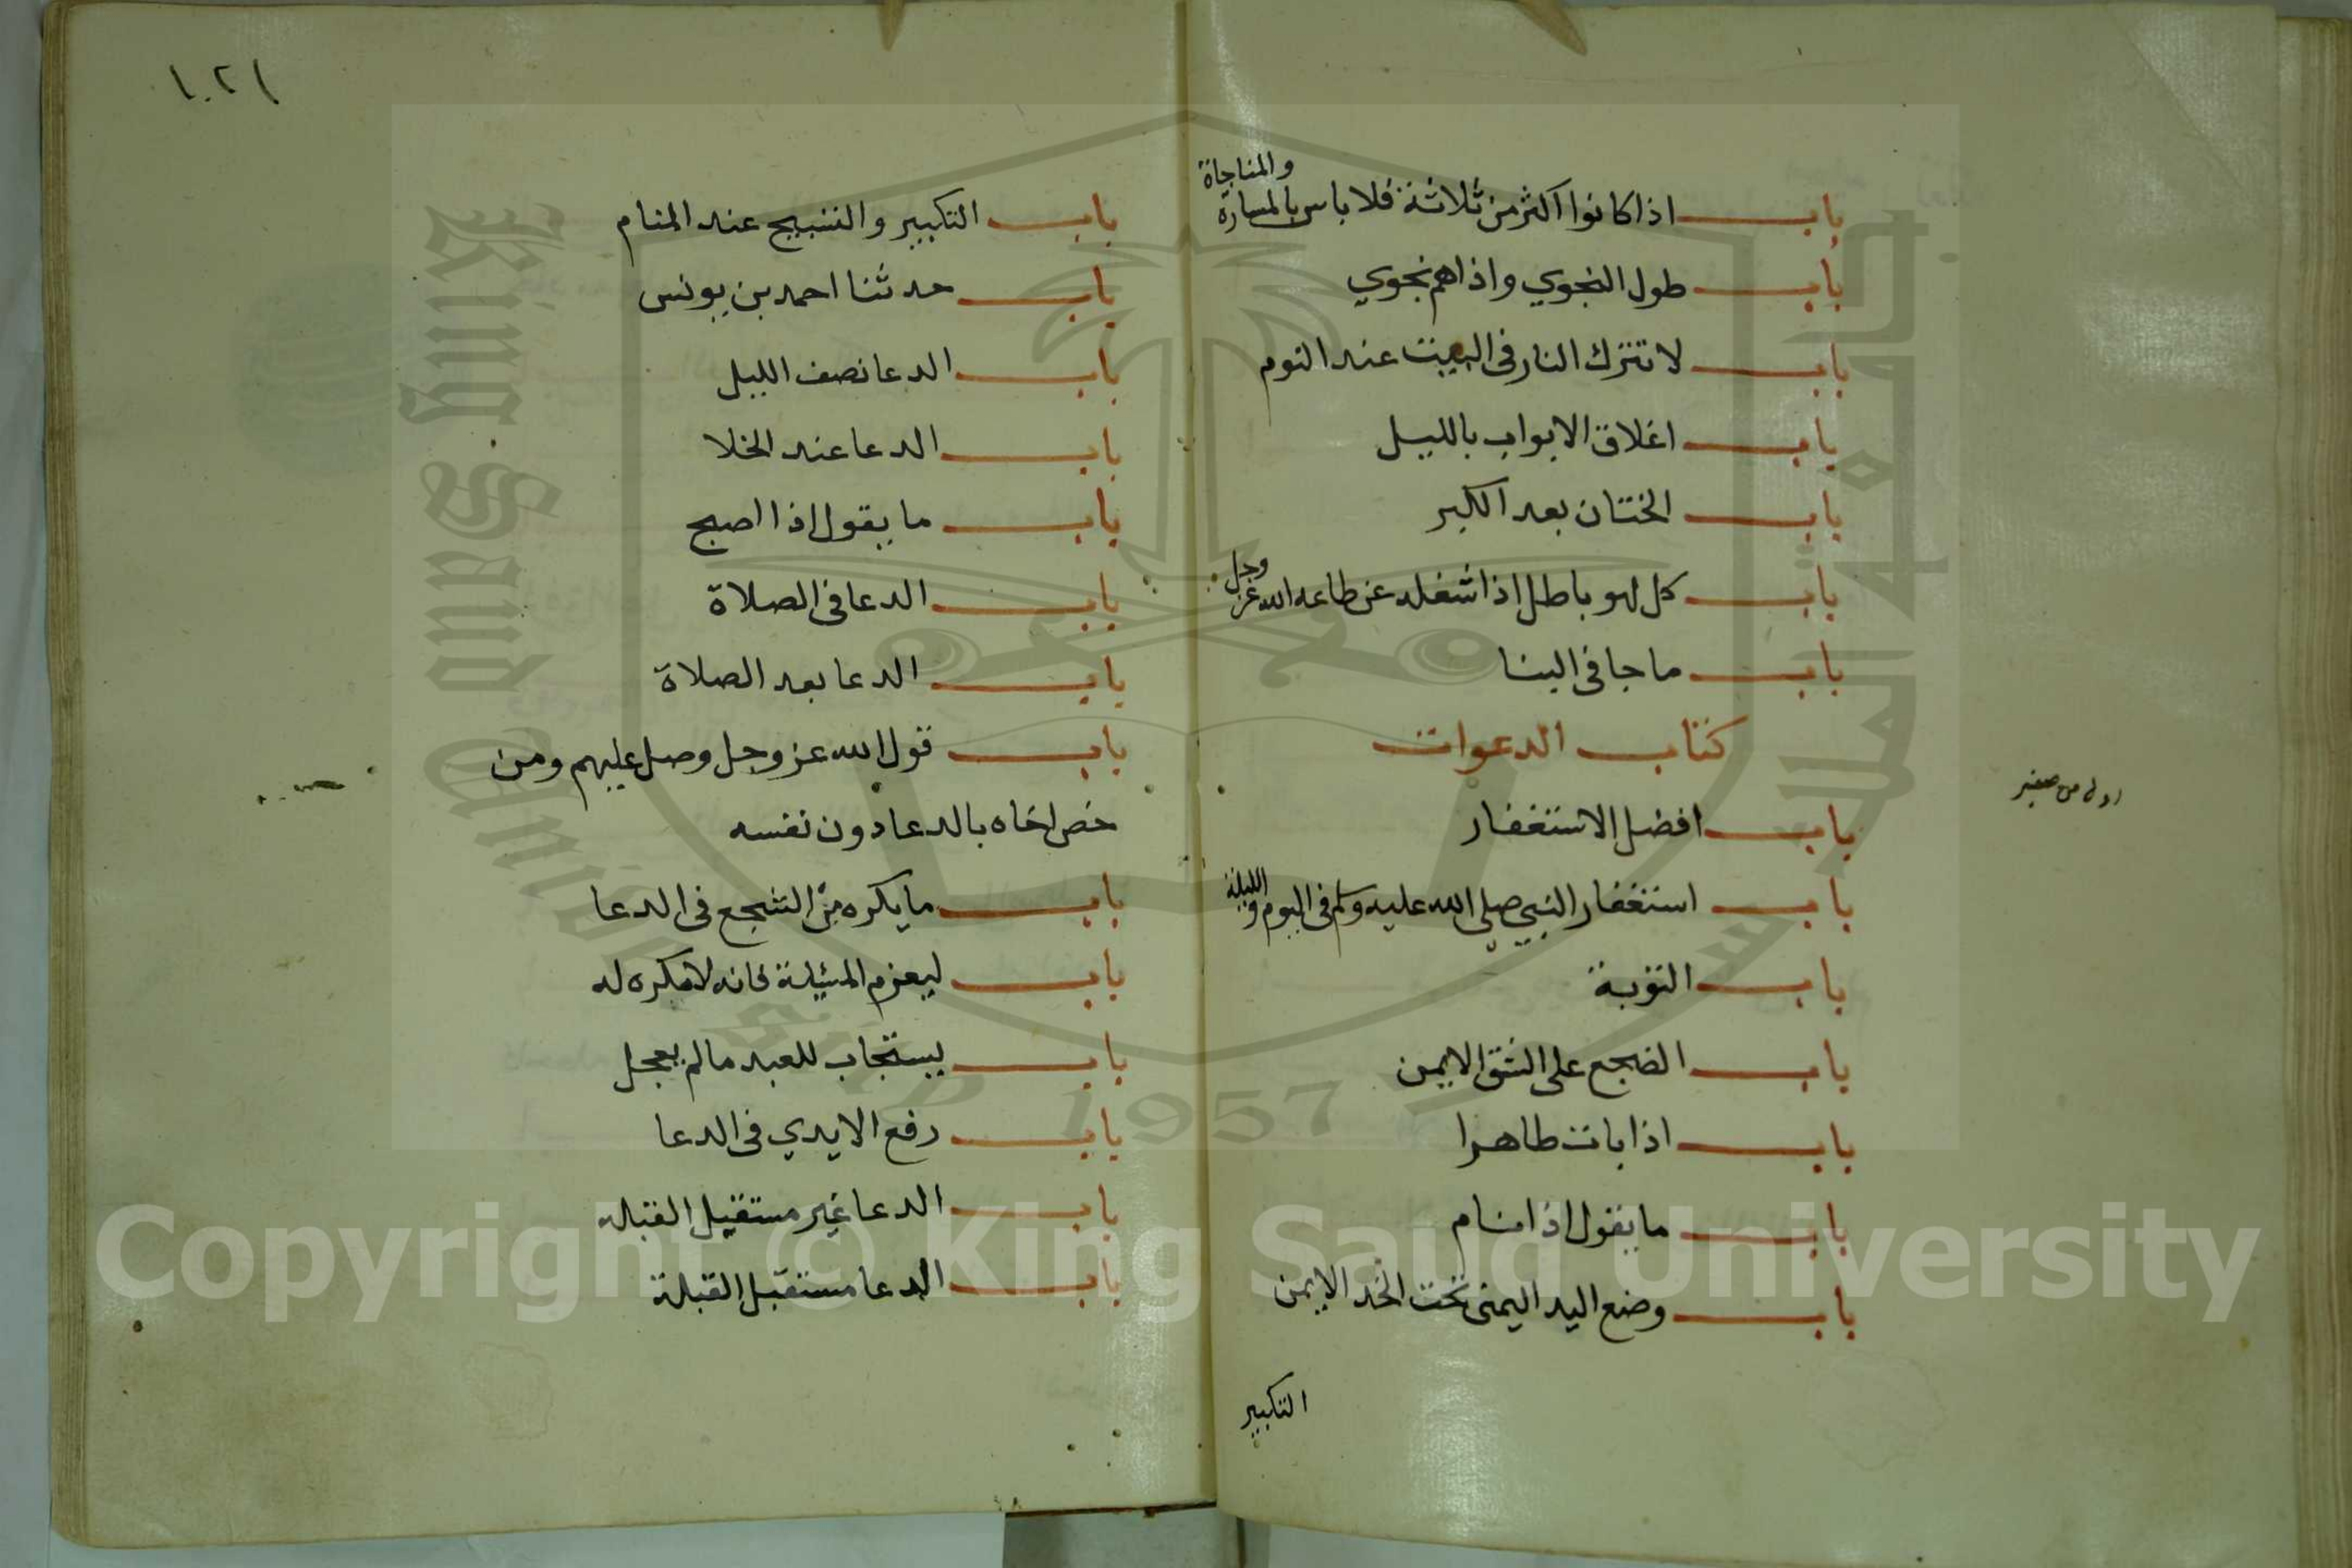 باب اذا كانوا اكثر من ثلاثة فلا باس بالمسارة والمناجاة
باب طول النجوي واذ اهم نجوي
باب لا تترك النار في البيت عند النوم
باب اغلاق الابواب بالليل
باب الختان بعد الكبر
باب كل لهو باطل اذا شغله عن طاعه الله عز وجل
باب ما جا في البنا
كتاب الدعوات
باب افضل الاستغفار
باب استغفار النبي صلى الله عليه وسلم في اليوم والليلة
باب التوبة
باب الضجع على الشق الايمن
باب اذا بات طاهرا
باب ما يقول اذا نام
باب وضع اليد اليمنى تحت الخد الايمن
التكبير
١٠٢١
باب التكبير والتسبيح عند المنام
باب حدثنا احمد بن يونس
باب الدعا نصف الليل
باب الدعا عند الخلا
باب ما يقول اذا اصبح
باب الدعا في الصلاة
باب الدعا بعد الصلاة
باب قول الله عز وجل وصل عليهم ومن
خص اخاه بالدعا دون نفسه
باب ما يكره من السجع في الدعا
باب ليعزم المسئلة فانه لا مكره له
باب يستجاب للعبد ما لم يعجل
باب رفع الايدي في الدعا
باب الدعا غير مستقبل القبله
باب الدعا مستقبل القبلة
King Saud University
1957
Copyright © King Saud University